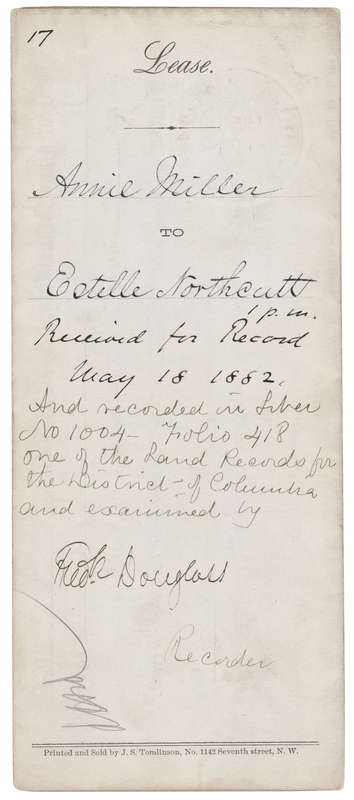 17
Lease.
Annie Miller
TO
Estelle Northcutt
1 p.m.
Received for Record
May 18 1882.
And recorded in Liber
No 1004 - Folio 418
one of the Land Records for
the District of Columbia
and examined by
Fredk Douglass
Recorder
Printed and Sold by J. S. Tomlinson, No. 1142 Seventh street, N. W.